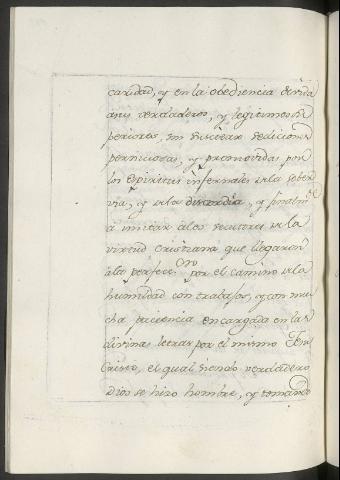 caridad, y en la obediencia devida
a sus verdaderos, y legitimos Su
periores, sin suscitar sediciones
perniciosas, y promovidas por
los espiritus infernales de la sober
via, y de la discordia, y finalmte
a imitar a los sectores de la
virtud cristiana que llegaron
a la perfeccion por el camino de la
humildad con trabajos, y con mu
cha paciencia encargada en las
divinas letras por el mismo Jesu
Cristo, el qual siendo verdadero
Dios se hizo hombre, y tomando